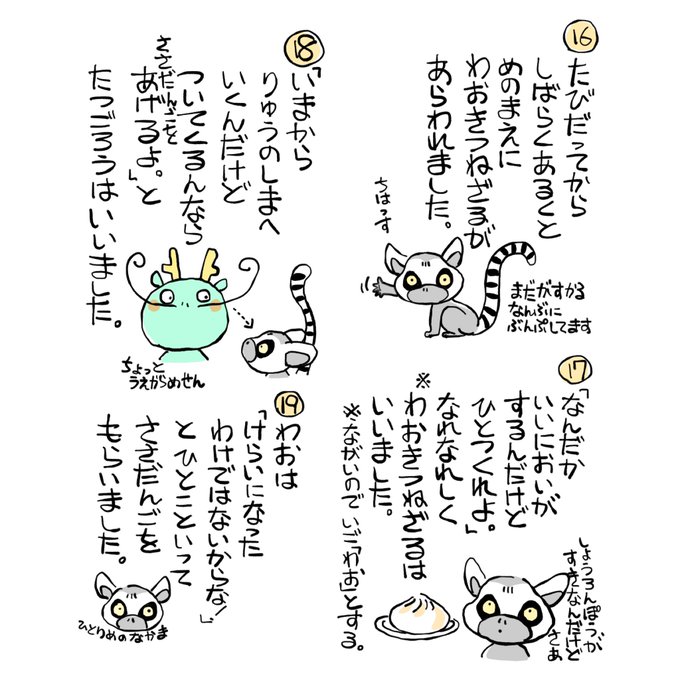 16
たびだってから
しばらくあるくと
めのまえに
わおきつねざるが
あらわれました。
ちはっす
まだがすかる
なんぶに
ぶんぷしてます
17
「なんだか
いいにおいが
するんだけど
ひとつくれよ。」
なれなれしく
※
わおきつねざるは
いいました。
※ながいのでいご「わお」とする。
しょうろんぽうが
すきなんだけど
さあ
18
「いまから
りゅうのしまへ
いくんだけど
ついてくるんなら
ささだんごを
あげるよ。」と
たつごろうはいいました。
ちょっと
うえからめせん
19
わおは
「けらいになった
わけではないからな!」
とひとこといって
ささだんごを
もらいました。
ひとりめのなかま